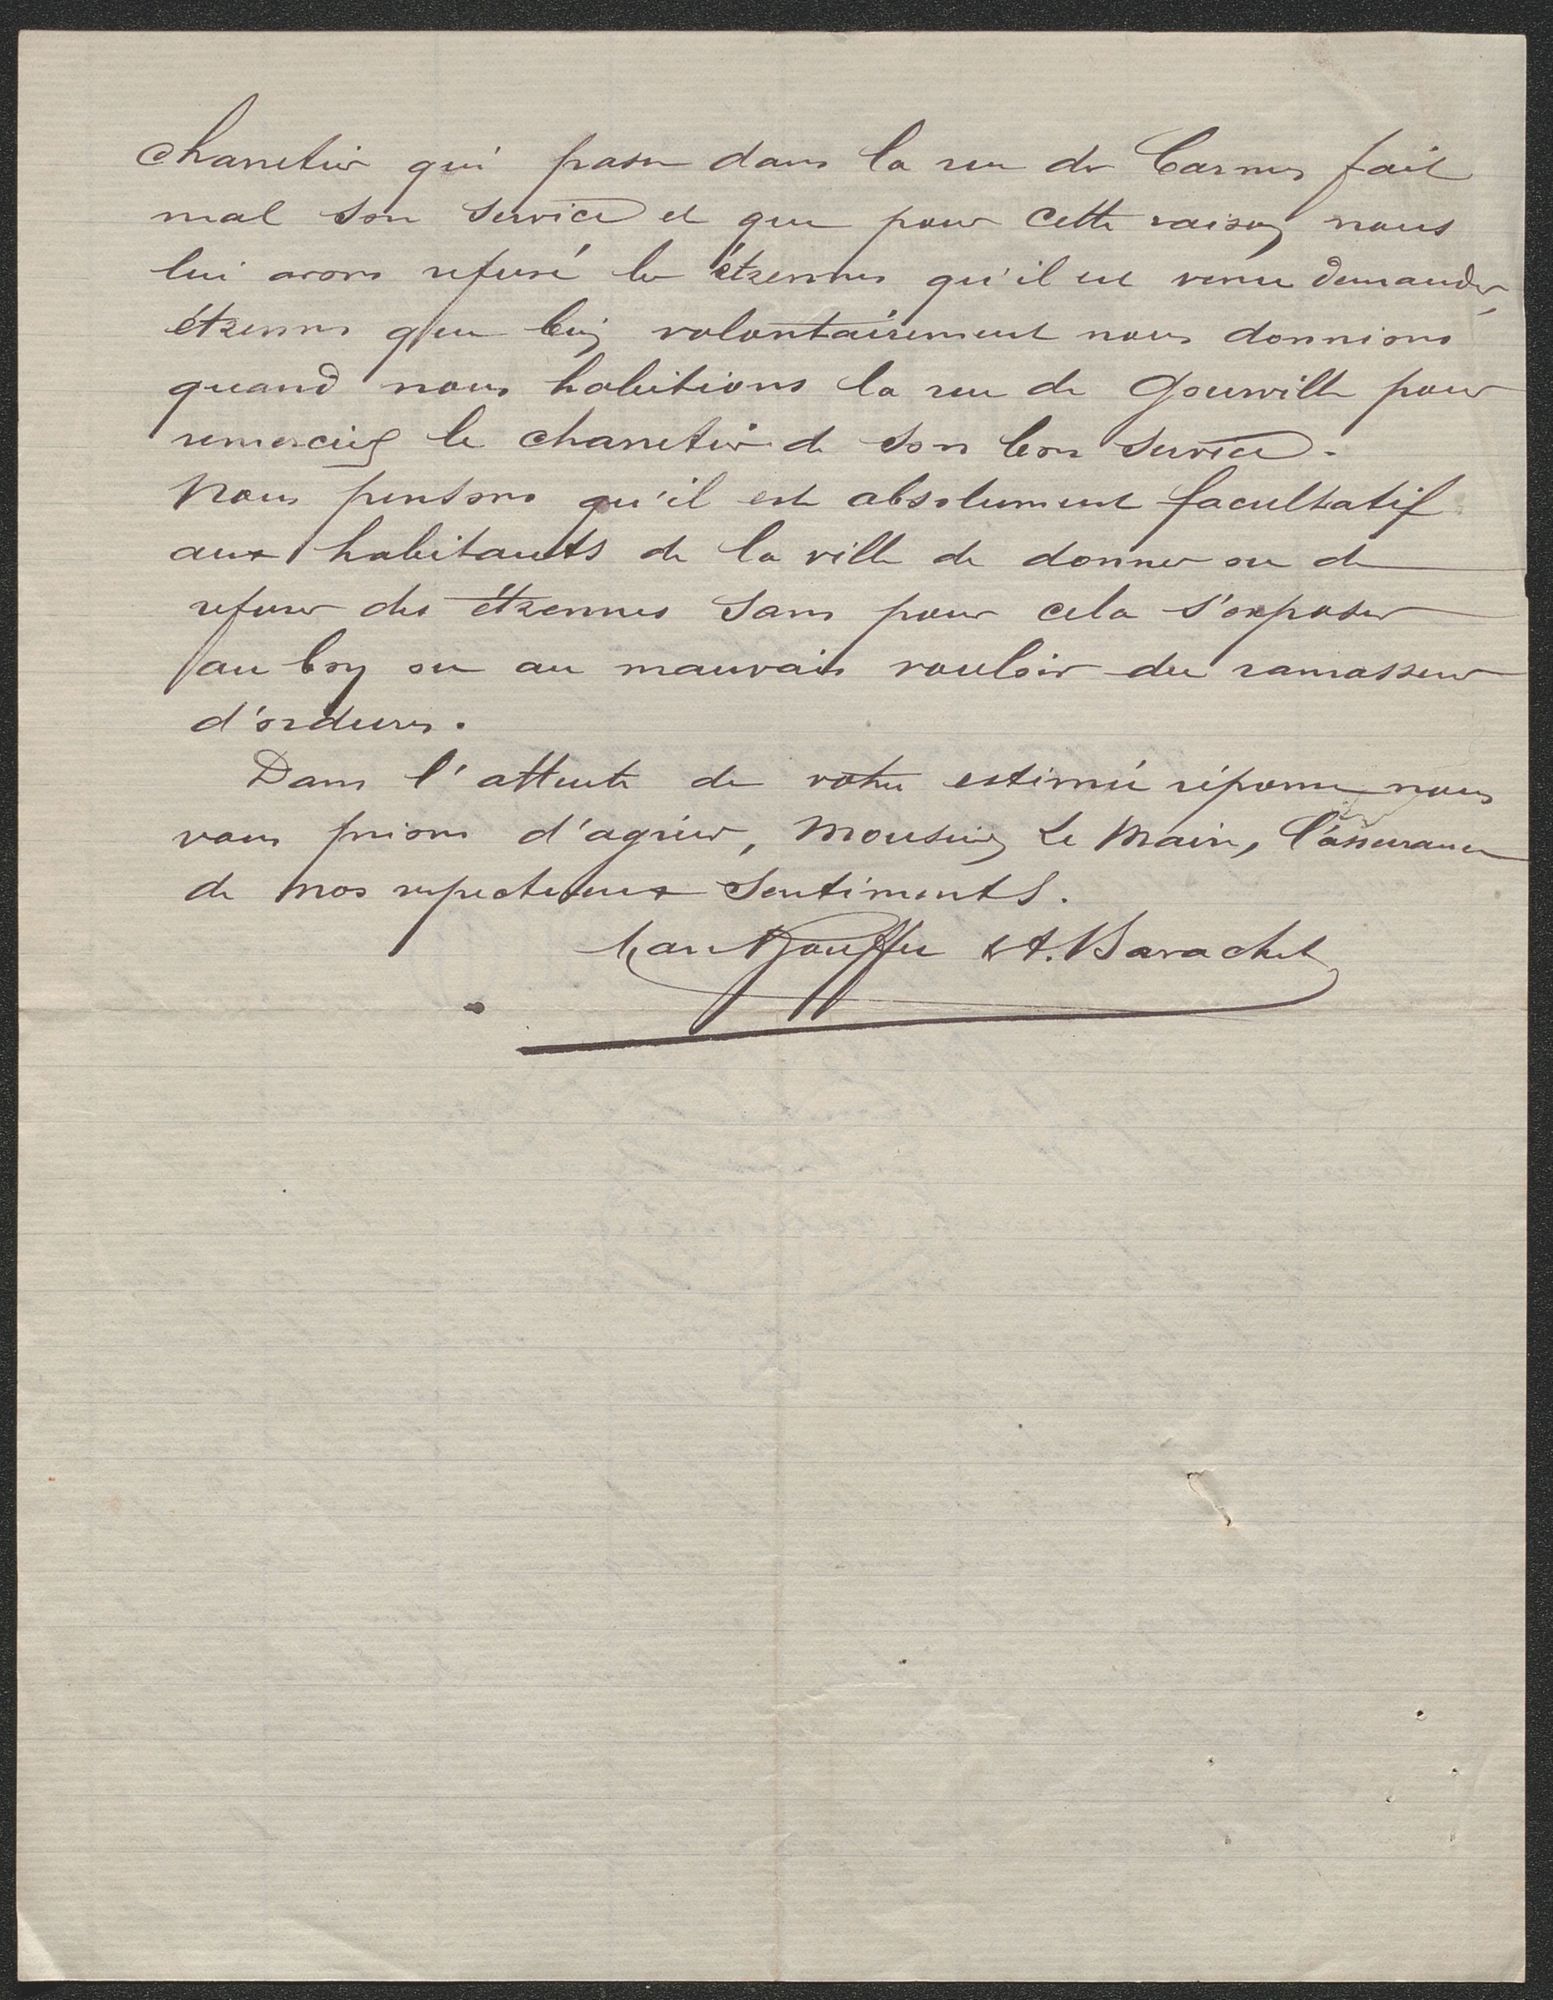 charretier qui passe dans la rue des Carmes fait
mal son service et que pour cette raison nous
lui avons refusé les étrennes qu'il est venu demander,
étrennes que bien volontairement nous donnions
quand nous habitions la rue de Gourville pour
remercier le charretier de son bon service.
Nous pensons qu'il est absolument facultatif
aux habitants de la ville de donner ou de
refuser des étrennes sans pour cela s'exposer
au bon ou au mauvais vouloir du ramasseur
d'ordures.
Dans l'attente de votre estimée réponse nous
vous prions d'agréer, Monsieur Le Maire, l'assurance
de nos respectueux sentiments.
A. Barachet